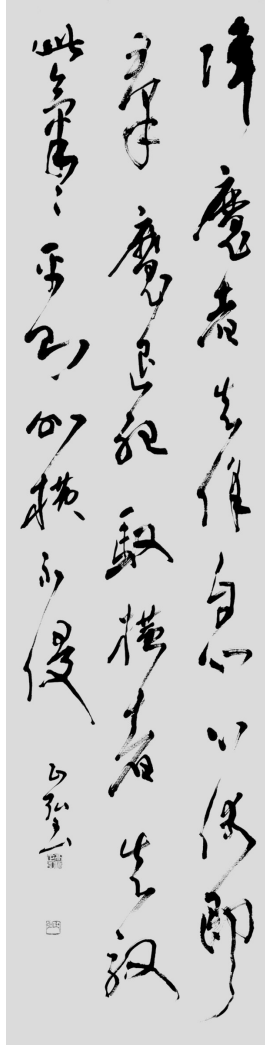 降魔者先降自心心伏則
羣魔退聽馭横者先馭
此氣々平則外横不侵